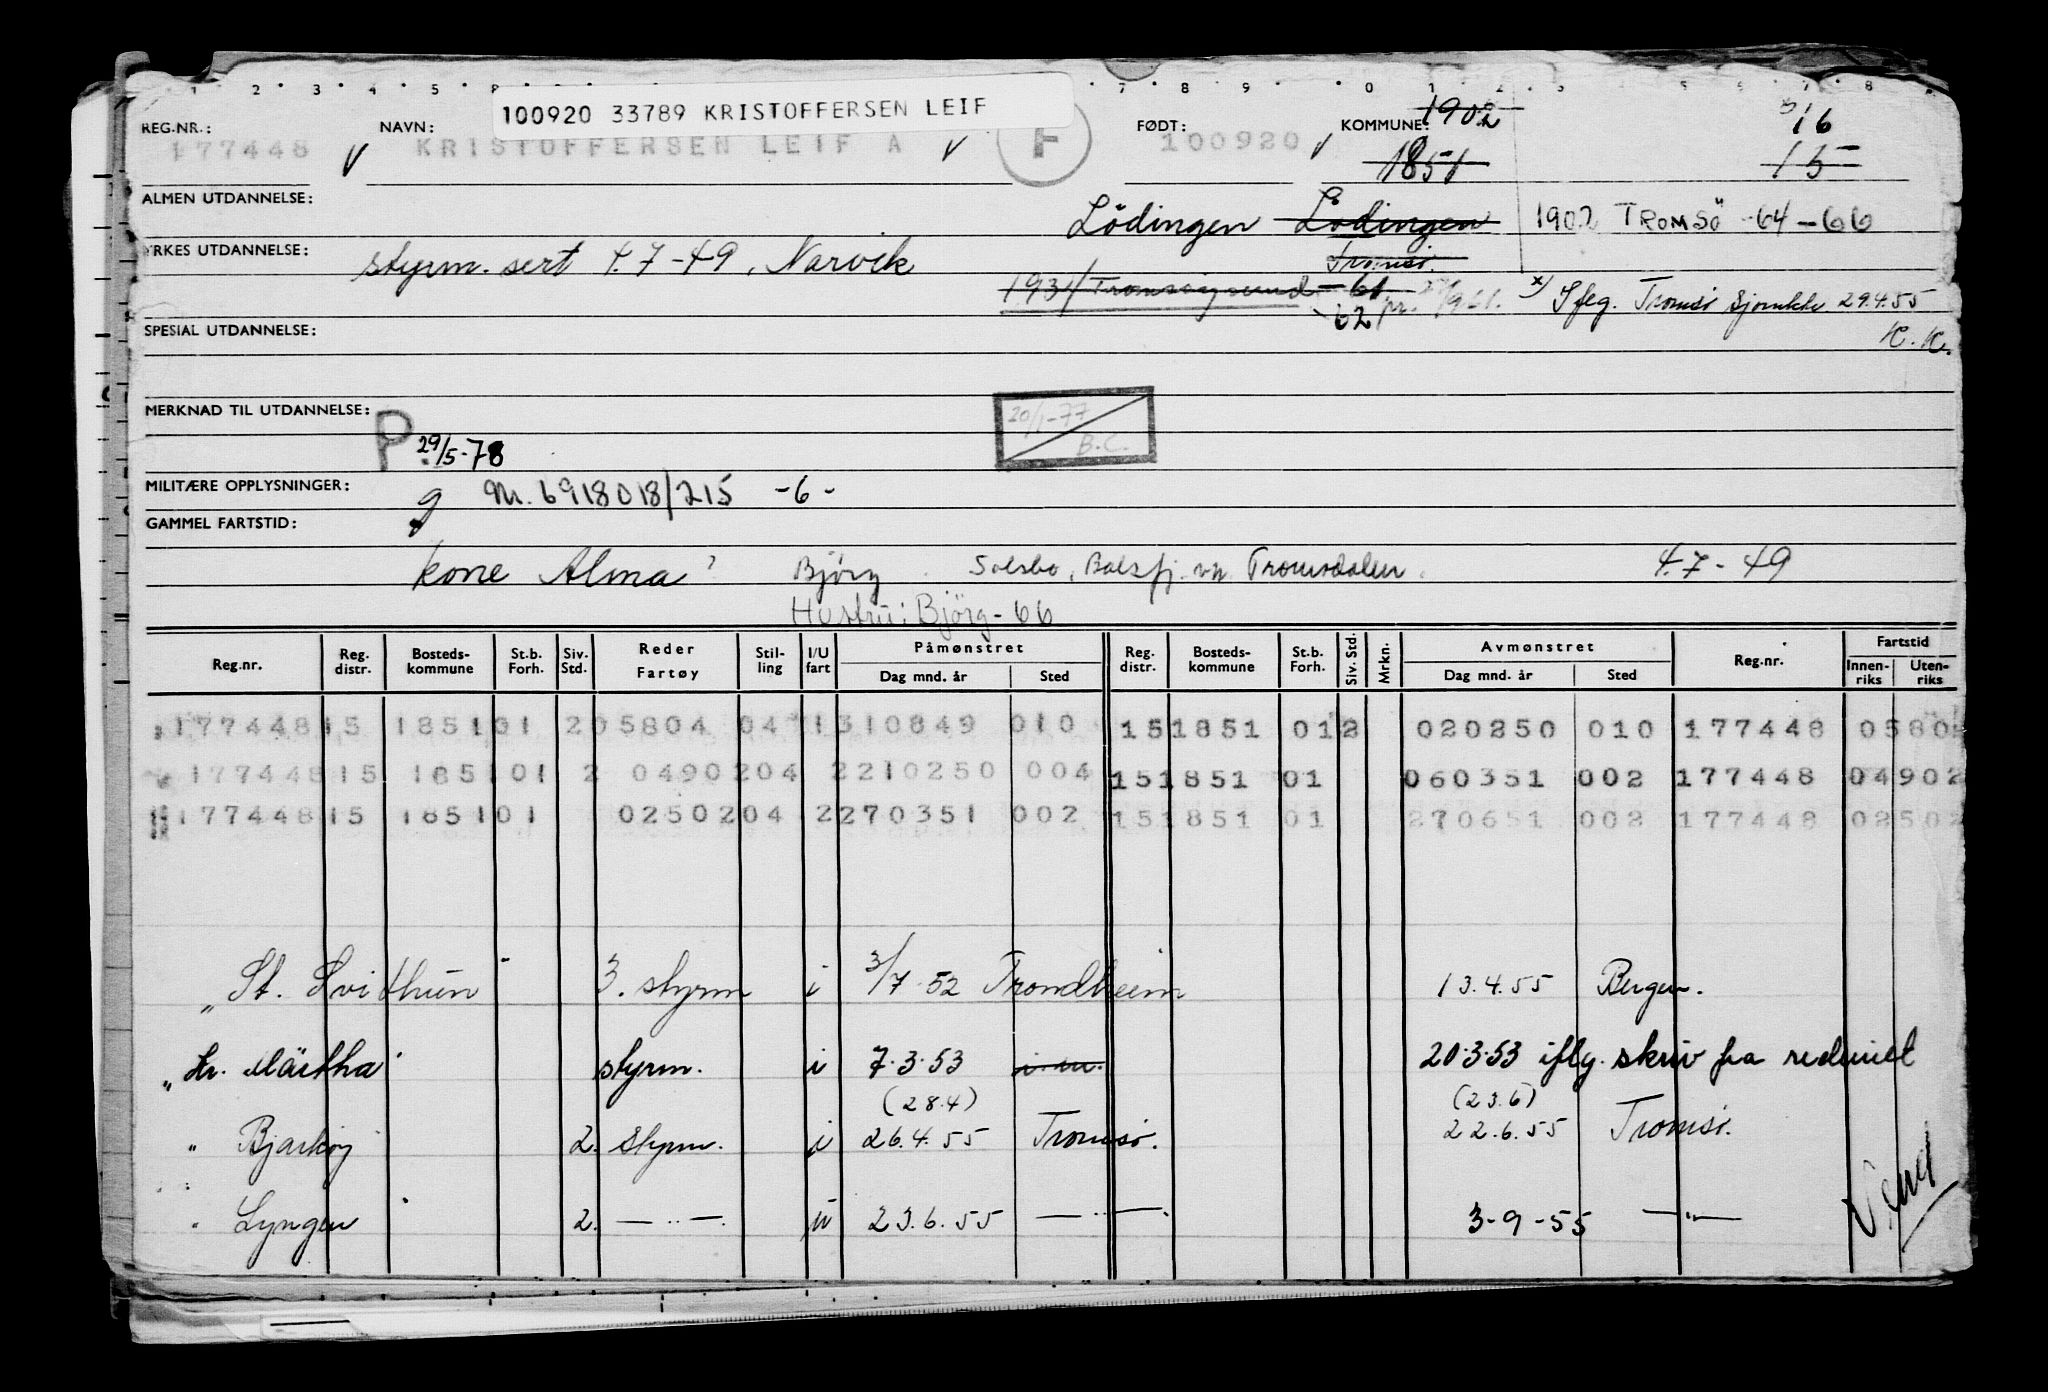 100920 33789 KRISTOFFERSEN LEIF
REG.NR.: NAVN: FØDT: KOMMUNE: 1902 16
177448 KRISTOFFERSEN LEIF A F 100920 1851 15
ALMEN UTDANNELSE:
Lödingen Lödingen 1902 TROMSÖ -64-66
YRKES UTDANNELSE: styrm. sert 4.7-49, Narvik Tromsø.
1931 Tromsøysund -61
62 Iføg. Tromsø Sjørulle 29.4.55
SPESIAL UTDANNELSE: K.K.
MERKNAD TIL UTDANNELSE: 20/1-77 B.C.
P 29/5-78
MILITÆRE OPPLYSNINGER: g M. 6918018/215 -6-
GAMMEL FARTSTID:
kone Alma? Bjørg Solsbo, Balsfj. Tromsdalen. 4.7-49
Hustru: Björg-66
Reg.nr. Reg. distr. Bosteds-kommune St.b. Forh. Siv. Std. Reder Fartøy Stil-ling I/U fart Påmønstret Dag mnd. år Sted Reg. distr. Bosteds-kommune St.b. Forh. Siv. Std. Mrkn. Avmønstret Dag mnd. år Sted Reg.nr. Fartstid Innen-riks Uten-riks
177448 15 1851 01 2 05804 04 1 310849 010 15 1851 01 2 020250 010 177448 05802
177448 15 1851 01 2 04902 04 2 210250 004 15 1851 01 060351 002 177448 04902
177448 15 1851 01 02502 04 2 270351 002 15 1851 01 270651 002 177448 02502
" St. Svithun " 3. styrm i 3/7-52 Trondheim 13.4.55 Bergen.
" Kr. Märtha " styrm. i 7.3.53 i m. 20.3.53 iflg. skriv fra rederiet
(28.4) (23.6)
" Bjarkøy 2. styrm. i 26.4.55 Tromsø. 22.6.55 Tromsø.
" Lyngen " 2. — " — u 23.6.55 — " — 3-9-55 — " —